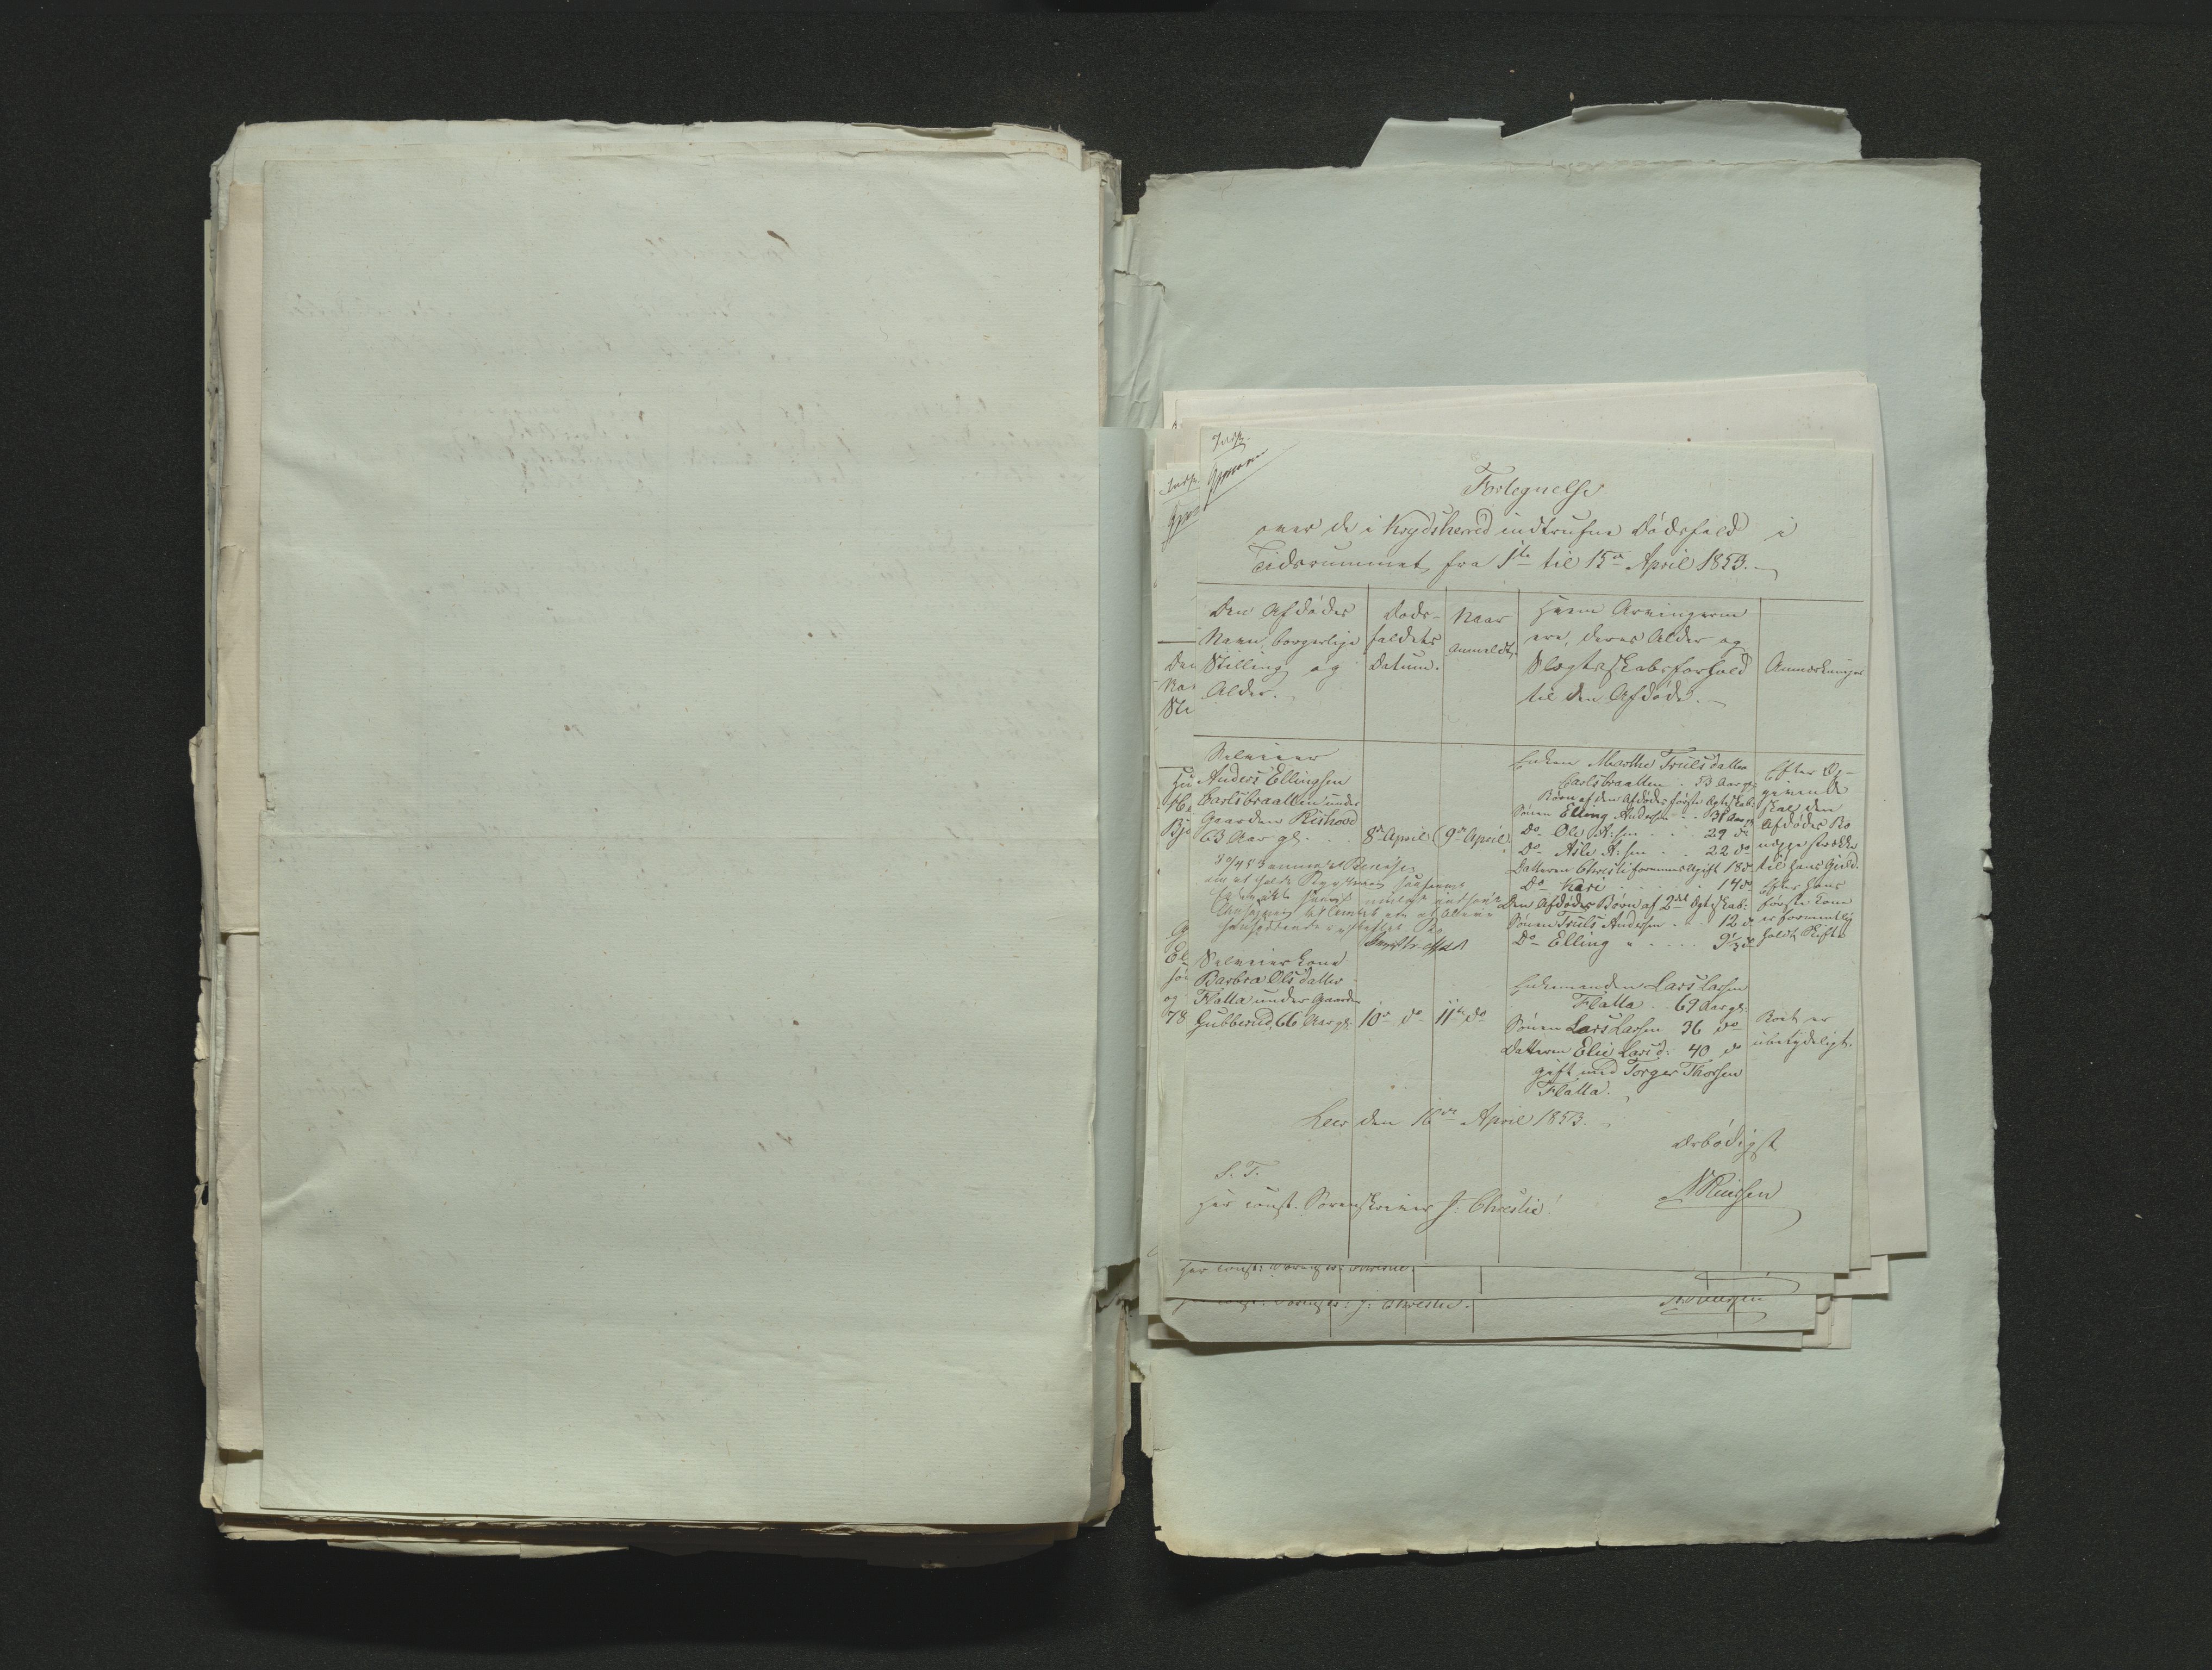 Indf.
Fortegnelse
over de i Krydsherred indtrufne Dødsfald i
Tidsrummet fra 1ste til 15de April 1853.
Den Afdødes
Navn, borgerlige
Stilling og
Alder.
Døds-
faldets
Datum.
Naar
Anmeldt.
Hvem Arvingerne
ere, deres Alder og
Slægtskabsforhold
til den Afdøde.
Anmærkninger
Selveier
Anders Ellingsen
Carlsbraatten under
Gaarden Rishovd
63 Aar gl.
8de April
9de April
Enken Marthe Trulsdatter
Carlsbraatten 53 Aar gl.
Børn af den Afdødes første Ægteskab:
Sønen Elling Andersen 31 Aar gl
Do Ole A:sen 29 do
Do Asle A:sen 22 do
Datteren Christi 18 do
Do Kari 14 do
Den Afdødes Børn af 2det Ægteskab:
Sønen Truls Andersen 12 do
Do Elling 9½ do
Efter Op-
givende
skal den
Afdødes Bo
neppe strække
til hans Gjeld.
Efter hans
første Kone
er formentlig
holdt Skifte
Selveierkone
Barbra Olsdatter
Flatta under Gaarden
Gubberud, 66 Aar gl.
10de do
11te do
Enkemanden Lars Larsen
Flatta 69 Aar gl.
Sønen Lars Larsen 36 do
Datteren Elie Larsd: 40 do
gift med Torger Thorsen
Flatta.
Boet er
ubetydeligt.
Leer den 16de April 1853.
Ærbødigst
S. T.
Hr const. Sorenskriver J. Christie!